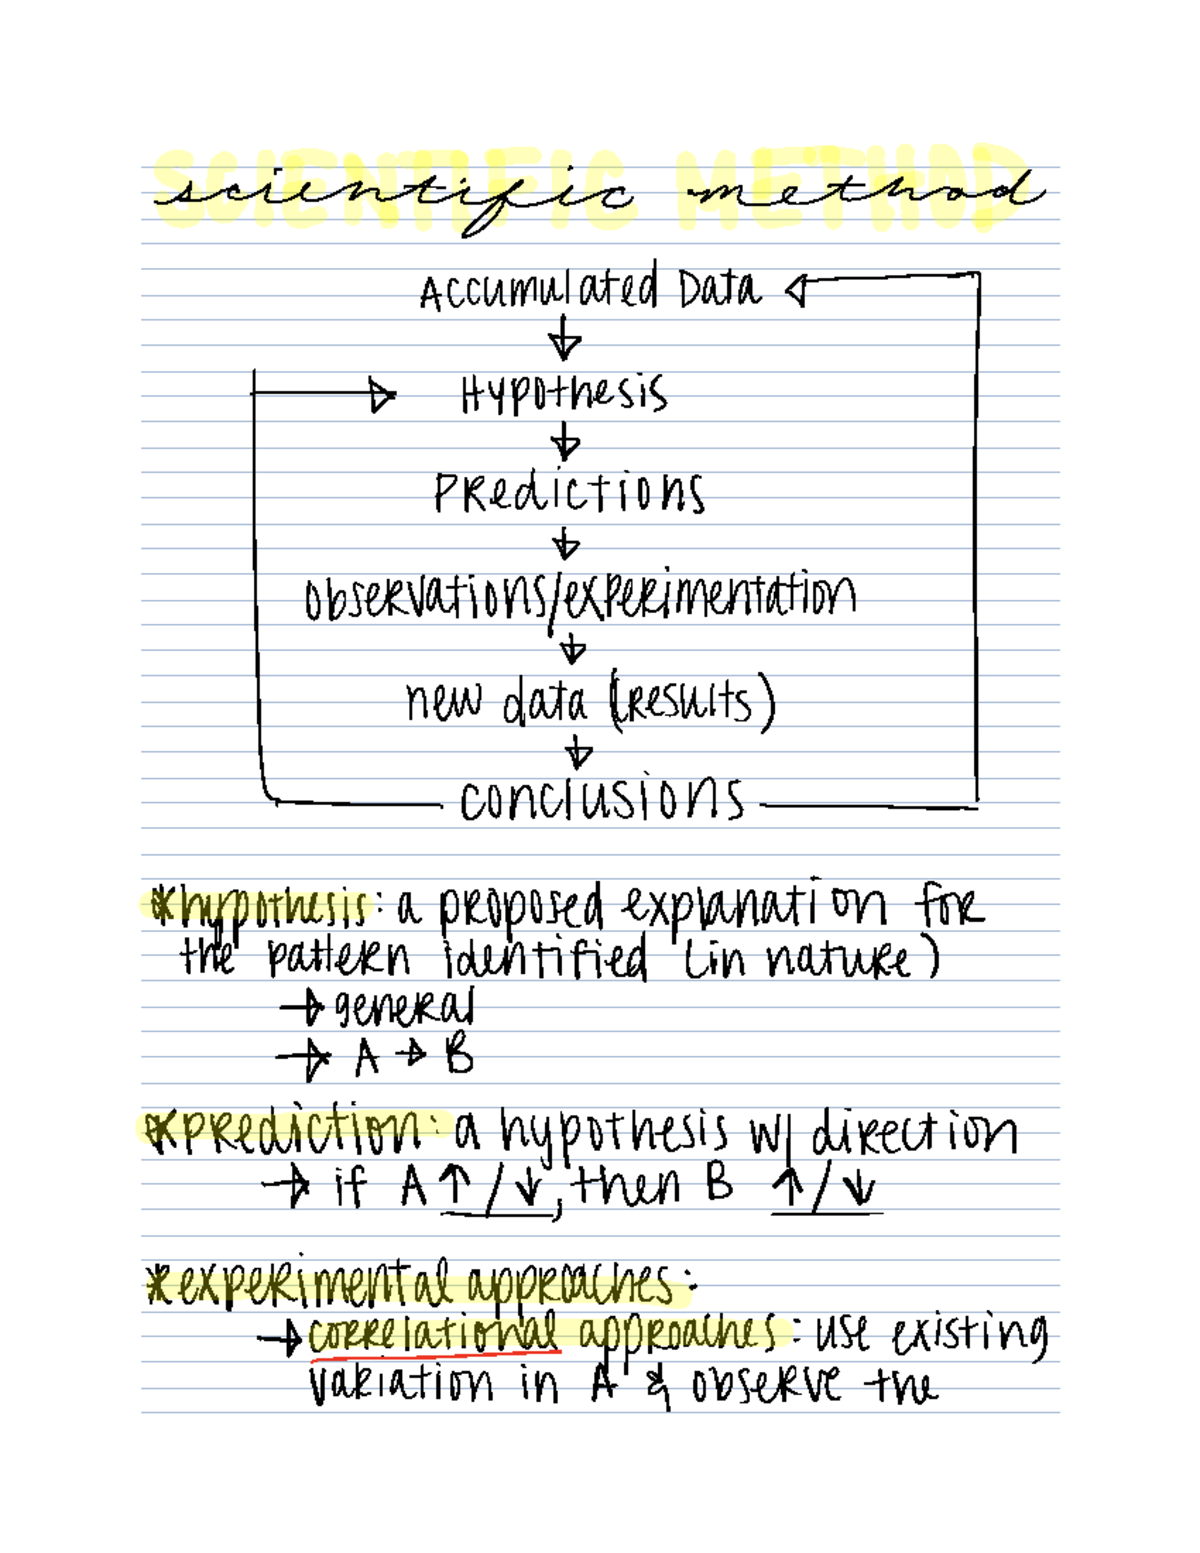 SCIENTIFIC METHOD
scientific method
Accumulated Data
Hypothesis
Predictions
observations/experimentation
new data (results)
conclusions
*hypothesis: a proposed explanation for
the pattern identified (in nature)
→ general
→ A → B
*prediction: a hypothesis w/ direction
→ if A ↑/↓, then B ↑/↓
*experimental approaches:
→ correlational approaches: use existing
variation in A & observe the